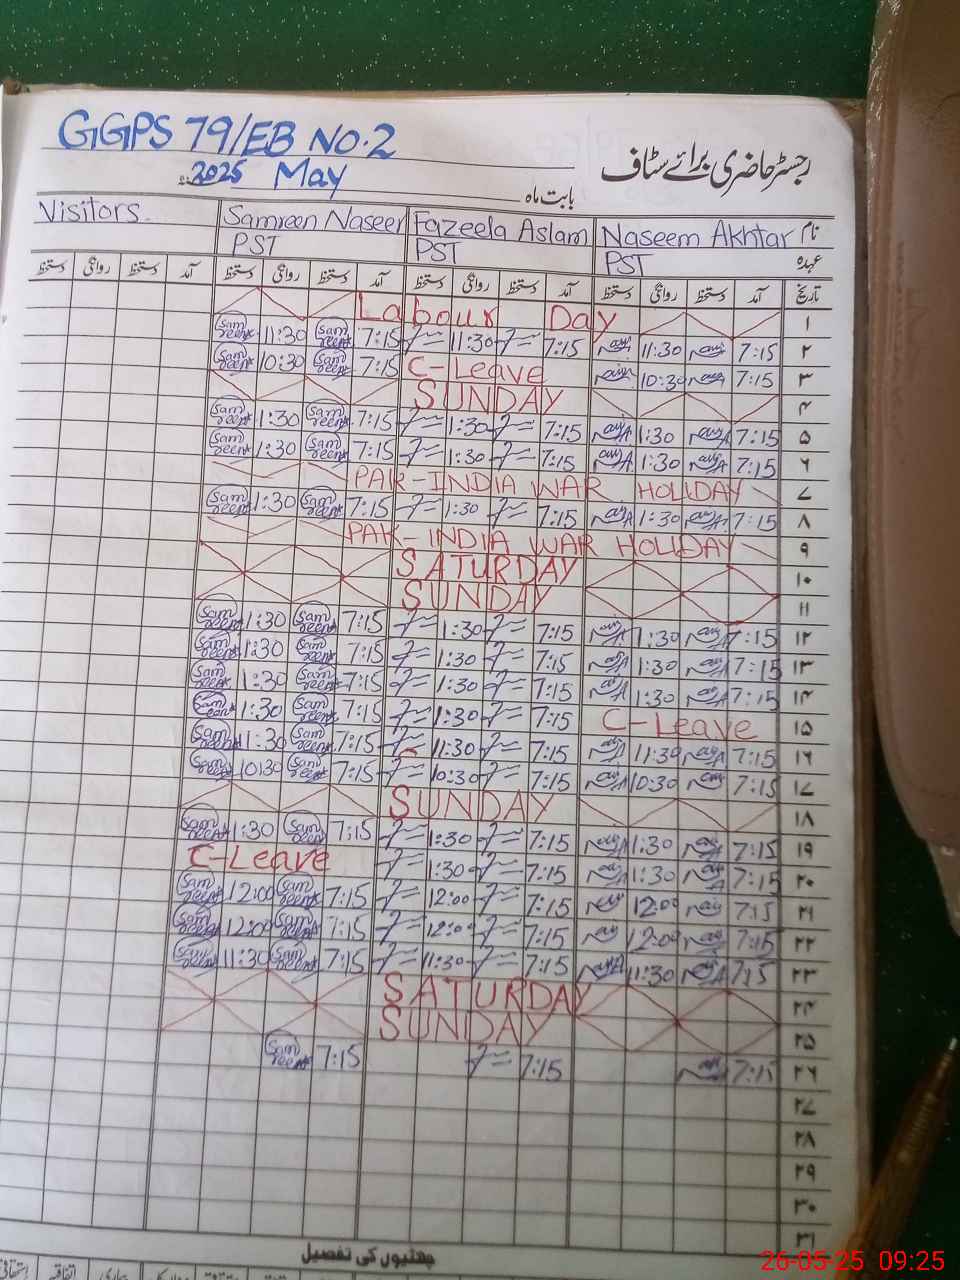 GGPS 79/EB NO.2
رجسٹر حاضری برائے سٹاف
2025 May بابت ماہ
Visitors Samreen Naseer Fazeela Aslam Naseem Akhtar نام
PST PST PST عہدہ
دستخط روانگی دستخط آمد دستخط روانگی دستخط آمد دستخط روانگی دستخط آمد دستخط روانگی دستخط آمد تاریخ
Labour Day ۱
Samreen 11:30 Samreen 7:15 11:30 7:15 11:30 7:15 ۲
Samreen 10:30 Samreen 7:15 C-Leave 10:30 7:15 ۳
SUNDAY ۴
Samreen 1:30 Samreen 7:15 1:30 7:15 1:30 7:15 ۵
Samreen 1:30 Samreen 7:15 1:30 7:15 1:30 7:15 ۶
PAK-INDIA WAR HOLIDAY ۷
Samreen 1:30 Samreen 7:15 1:30 7:15 1:30 7:15 ۸
PAK-INDIA WAR HOLIDAY ۹
SATURDAY ۱۰
SUNDAY ۱۱
Samreen 1:30 Samreen 7:15 1:30 7:15 1:30 7:15 ۱۲
Samreen 1:30 Samreen 7:15 1:30 7:15 1:30 7:15 ۱۳
Samreen 1:30 Samreen 7:15 1:30 7:15 1:30 7:15 ۱۴
Samreen 1:30 Samreen 7:15 1:30 7:15 C-Leave ۱۵
Samreen 11:30 Samreen 7:15 11:30 7:15 11:30 7:15 ۱۶
Samreen 10:30 Samreen 7:15 10:30 7:15 10:30 7:15 ۱۷
SUNDAY ۱۸
Samreen 1:30 Samreen 7:15 1:30 7:15 1:30 7:15 ۱۹
C-Leave 1:30 7:15 1:30 7:15 ۲۰
Samreen 12:00 Samreen 7:15 12:00 7:15 12:00 7:15 ۲۱
Samreen 12:00 Samreen 7:15 12:00 7:15 12:00 7:15 ۲۲
Samreen 11:30 Samreen 7:15 11:30 7:15 11:30 7:15 ۲۳
SATURDAY ۲۴
SUNDAY ۲۵
Samreen 7:15 7:15 7:15 ۲۶
۲۷
۲۸
۲۹
۳۰
۳۱
چھٹیوں کی تفصیل
بیماری اتفاقیہ استحقاقی
26-05-25 09:25